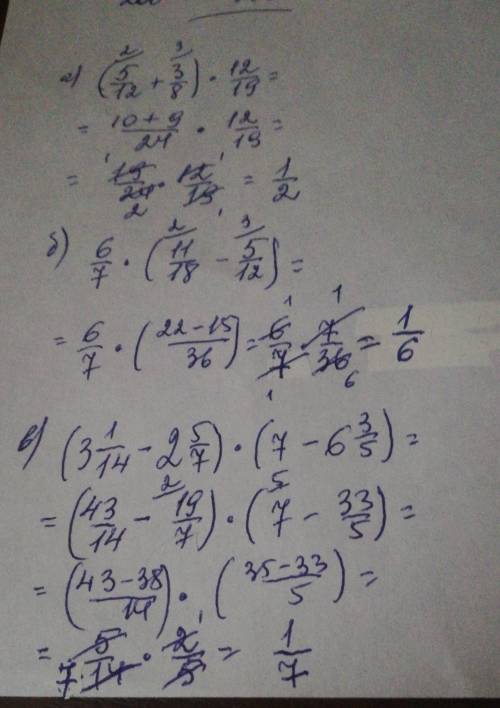 а) (5/12 + 3/8) · 12/19 =
= (10 + 9)/24 · 12/19 =
= 19/24 · 12/19 = 1/2
б) 6/7 · (11/18 − 5/12) =
= 6/7 · ((22 − 15)/36) = 6/7 · 7/36 = 1/6
в) (3 1/14 − 2 5/7) · (7 − 6 3/5) =
= (43/14 − 19/7) · (7 − 33/5) =
= ((43 − 38)/14) · ((35 − 33)/5) =
= 5/14 · 2/5 = 1/7